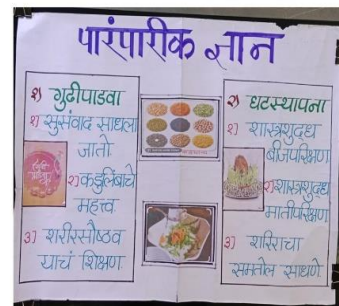 पारंपारीक ज्ञान
१) गुढीपाडवा
१) सुसंवाद साधला
जातो
२) कडुलिंबाचे
महत्त्व
३) शरीरसौष्ठव
याचं शिक्षण
२) घटस्थापना
१) शास्त्रशुद्ध
बीजपरिक्षण
२) शास्त्रशुद्ध
मातीपरिक्षण
३) शरिराचा
समतोल साधणे